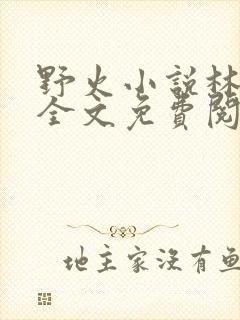 野火小說林
全文免費閱
地主家沒有魚